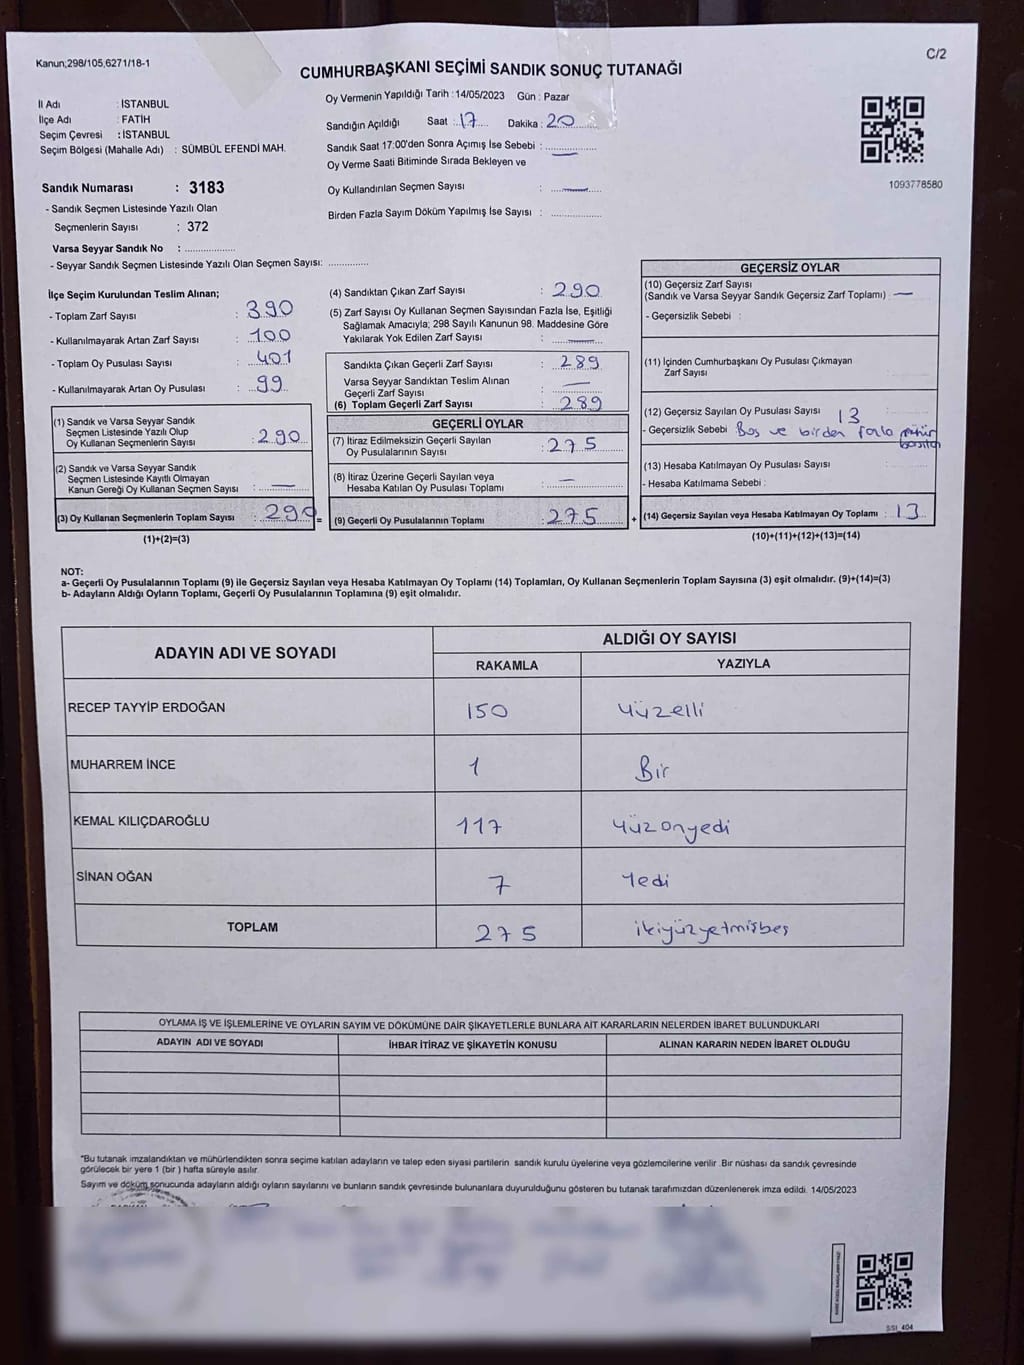 Kanun;298/105,6271/18-1
C/2
CUMHURBAŞKANI SEÇİMİ SANDIK SONUÇ TUTANAĞI
İl Adı : İSTANBUL
İlçe Adı : FATİH
Seçim Çevresi : İSTANBUL
Seçim Bölgesi (Mahalle Adı) : SÜMBÜL EFENDİ MAH.
Oy Vermenin Yapıldığı Tarih : 14/05/2023 Gün : Pazar
Sandığın Açıldığı Saat : 17 Dakika : 20
Sandık Saat 17:00'den Sonra Açımış İse Sebebi :
Oy Verme Saati Bitiminde Sırada Bekleyen ve
Oy Kullandırılan Seçmen Sayısı : —
Birden Fazla Sayım Döküm Yapılmış İse Sayısı :
1093778580
Sandık Numarası : 3183
- Sandık Seçmen Listesinde Yazılı Olan
Seçmenlerin Sayısı : 372
Varsa Seyyar Sandık No :
- Seyyar Sandık Seçmen Listesinde Yazılı Olan Seçmen Sayısı:
İlçe Seçim Kurulundan Teslim Alınan;
- Toplam Zarf Sayısı : 390
- Kullanılmayarak Artan Zarf Sayısı : 100
- Toplam Oy Pusulası Sayısı : 401
- Kullanılmayarak Artan Oy Pusulası : 99
(1) Sandık ve Varsa Seyyar Sandık
Seçmen Listesinde Yazılı Olup
Oy Kullanan Seçmenlerin Sayısı : 290
(2) Sandık ve Varsa Seyyar Sandık
Seçmen Listesinde Kayıtlı Olmayan
Kanun Gereği Oy Kullanan Seçmen Sayısı : —
(3) Oy Kullanan Seçmenlerin Toplam Sayısı : 290 =
(1)+(2)=(3)
(4) Sandıktan Çıkan Zarf Sayısı : 290
(5) Zarf Sayısı Oy Kullanan Seçmen Sayısından Fazla İse, Eşitliği
Sağlamak Amacıyla; 298 Sayılı Kanunun 98. Maddesine Göre
Yakılarak Yok Edilen Zarf Sayısı : —
Sandıkta Çıkan Geçerli Zarf Sayısı : 289
Varsa Seyyar Sandıktan Teslim Alınan
Geçerli Zarf Sayısı : —
(6) Toplam Geçerli Zarf Sayısı : 289
GEÇERLİ OYLAR
(7) İtiraz Edilmeksizin Geçerli Sayılan
Oy Pusulalarının Sayısı : 275
(8) İtiraz Üzerine Geçerli Sayılan veya
Hesaba Katılan Oy Pusulası Toplamı : —
(9) Geçerli Oy Pusulalarının Toplamı : 275 +
GEÇERSİZ OYLAR
(10) Geçersiz Zarf Sayısı
(Sandık ve Varsa Seyyar Sandık Geçersiz Zarf Toplamı) : —
- Geçersizlik Sebebi :
(11) İçinden Cumhurbaşkanı Oy Pusulası Çıkmayan
Zarf Sayısı
(12) Geçersiz Sayılan Oy Pusulası Sayısı 13
- Geçersizlik Sebebi Boş ve birden fazla mühür
(13) Hesaba Katılmayan Oy Pusulası Sayısı
- Hesaba Katılmama Sebebi :
(14) Geçersiz Sayılan veya Hesaba Katılmayan Oy Toplamı : 13
(10)+(11)+(12)+(13)=(14)
NOT:
a- Geçerli Oy Pusulalarının Toplamı (9) ile Geçersiz Sayılan veya Hesaba Katılmayan Oy Toplamı (14) Toplamları, Oy Kullanan Seçmenlerin Toplam Sayısına (3) eşit olmalıdır. (9)+(14)=(3)
b- Adayların Aldığı Oyların Toplamı, Geçerli Oy Pusulalarının Toplamına (9) eşit olmalıdır.
ADAYIN ADI VE SOYADI
ALDIĞI OY SAYISI
RAKAMLA YAZIYLA
RECEP TAYYİP ERDOĞAN 150 yüzelli
MUHARREM İNCE 1 Bir
KEMAL KILIÇDAROĞLU 117 yüzonyedi
SİNAN OĞAN 7 Yedi
TOPLAM 275 ikiyüzyetmişbeş
OYLAMA İŞ VE İŞLEMLERİNE VE OYLARIN SAYIM VE DÖKÜMÜNE DAİR ŞİKAYETLERLE BUNLARA AİT KARARLARIN NELERDEN İBARET BULUNDUKLARI
ADAYIN ADI VE SOYADI İHBAR İTİRAZ VE ŞİKAYETİN KONUSU ALINAN KARARIN NEDEN İBARET OLDUĞU
*Bu tutanak imzalandıktan ve mühürlendikten sonra seçime katılan adayların ve talep eden siyasi partilerin sandık kurulu üyelerine veya gözlemcilerine verilir .Bir nüshası da sandık çevresinde
görülecek bir yere 1 (bir ) hafta süreyle asılır.
Sayım ve döküm sonucunda adayların aldığı oyların sayılarını ve bunların sandık çevresinde bulunanlara duyurulduğunu gösteren bu tutanak tarafımızdan düzenlenerek imza edildi. 14/05/2023
SSI_404